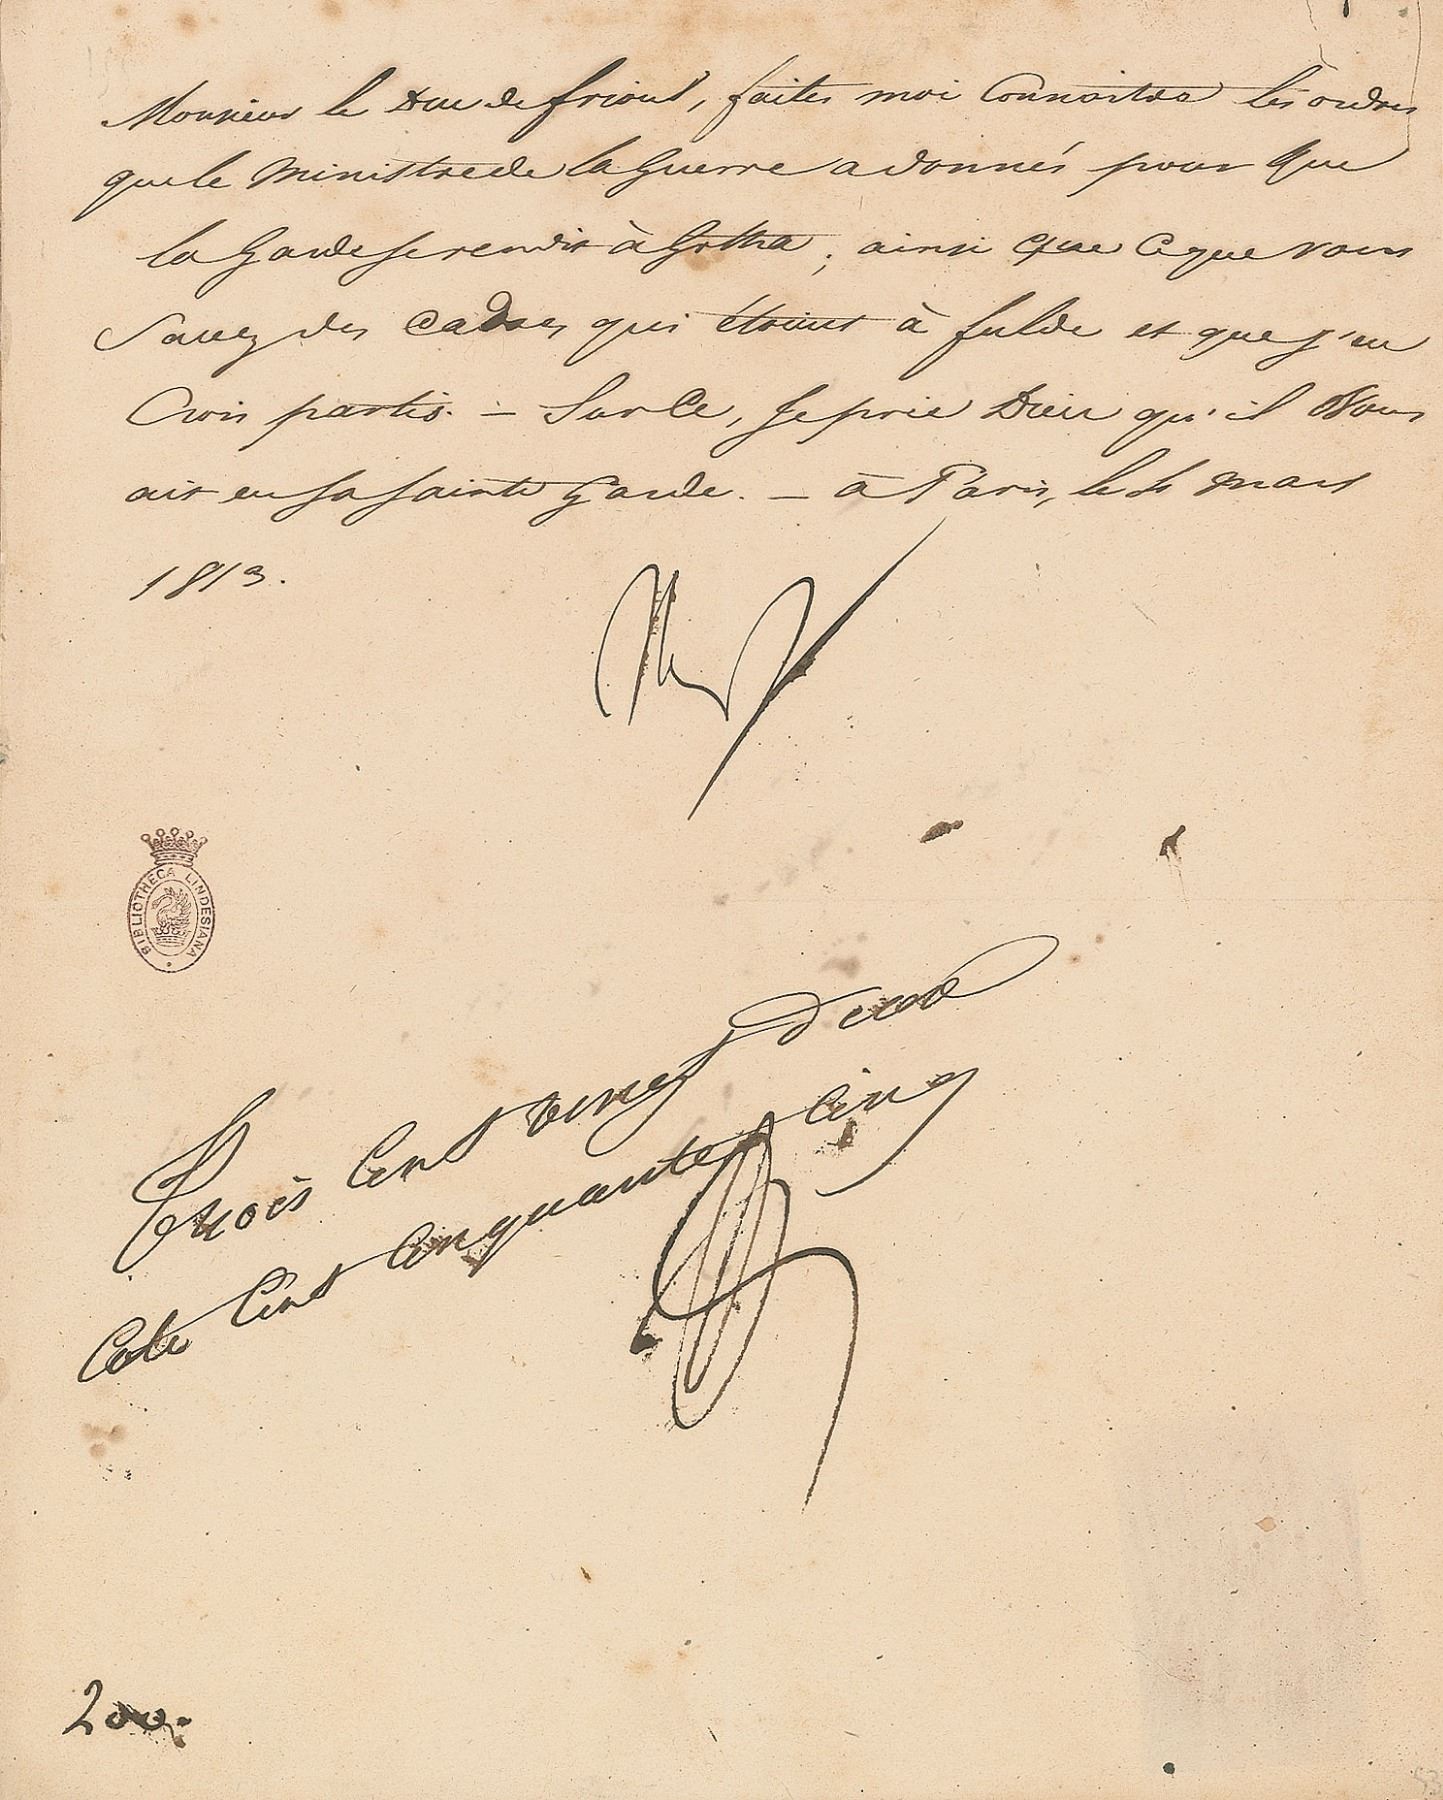 Monsieur le Duc de frioul, faites moi Connoitre les ordres
que le Ministre de la Guerre a donnés pour que
la Garde se rendit à Gotha, ainsi que ce que vous
Savez des Cadres qui étoient à fulde et que j'en
Crois partis. — Sur Ce, Je prie Dieu qu'il Vous
ait en sa sainte Garde. — à Paris, le 4 mars
1813.
Np
BIBLIOTHECA LINDESIANA
Trois Cent vingt deux
Cote Cent Cinquante Cinq
200.